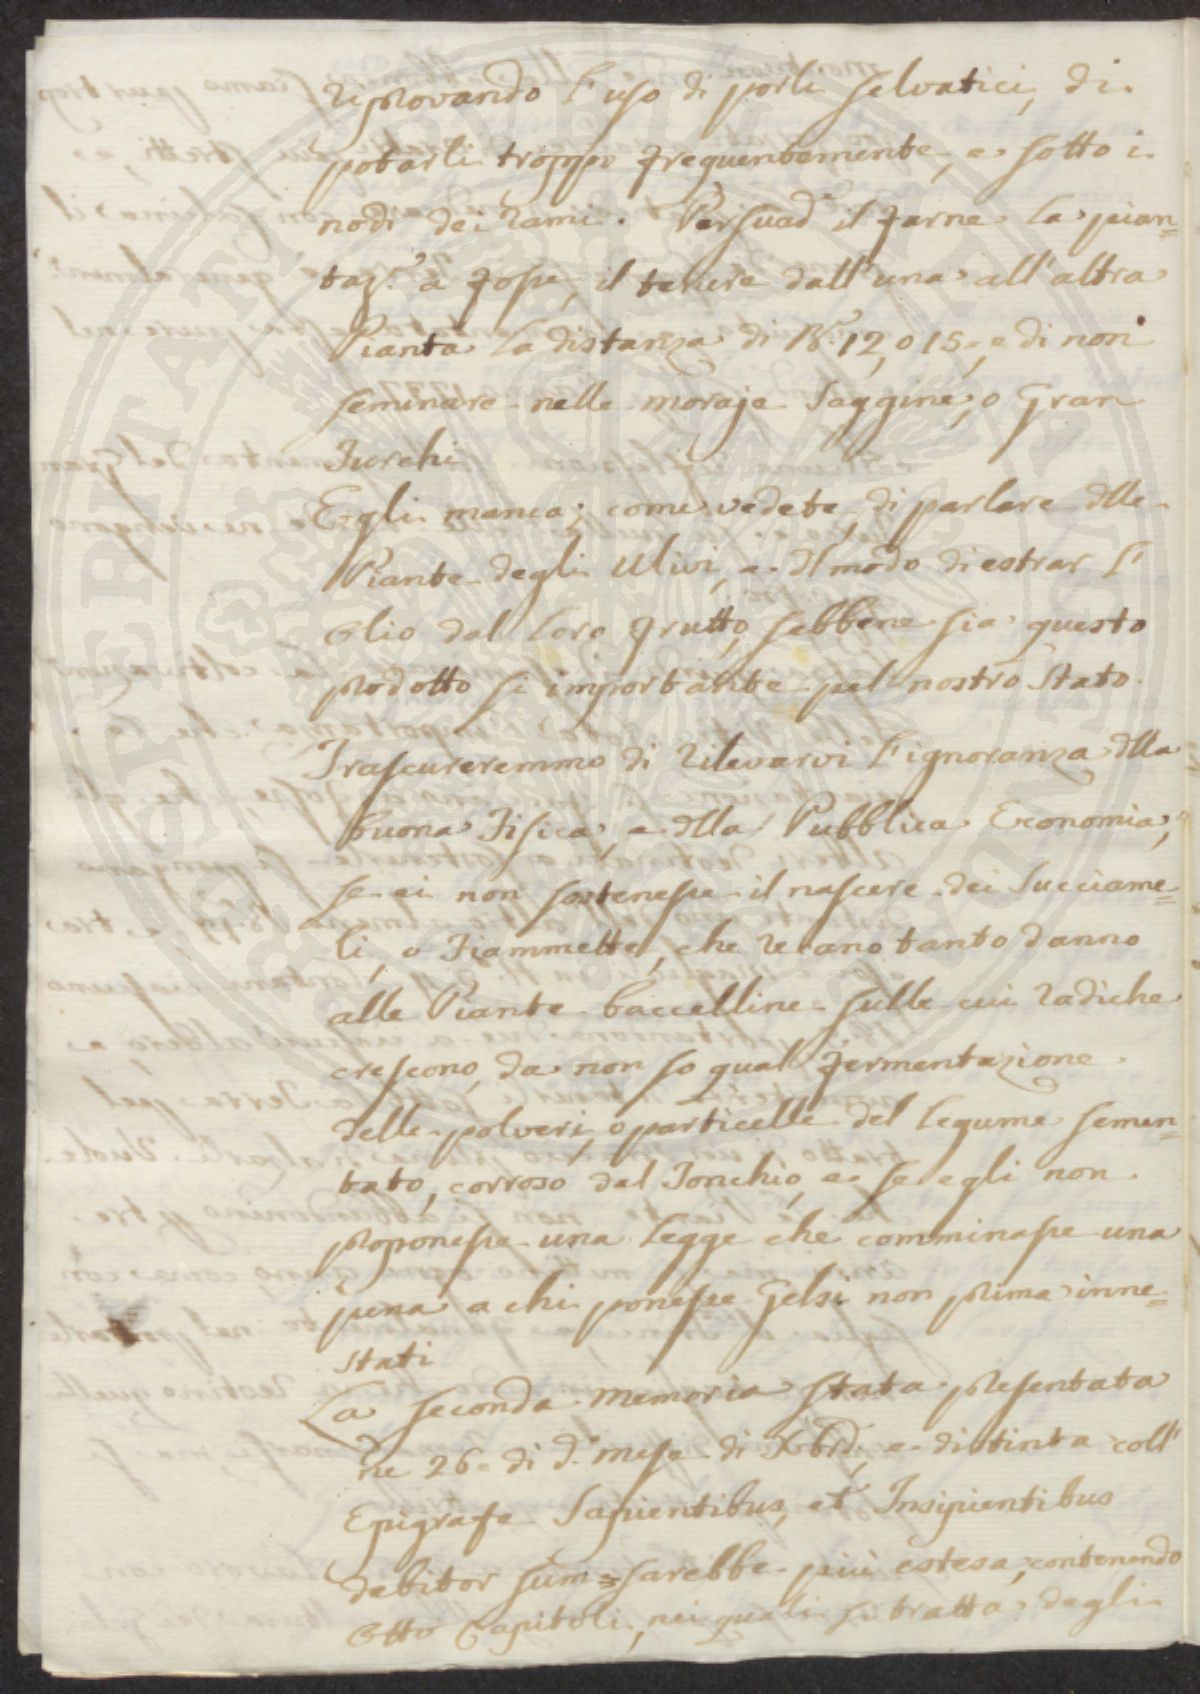 riprovando l'uso di porli selvatici, di
potarli troppo frequentemente, e sotto i
nodi dei rami. Persuad.e il farne la pian=
taz.e a fosse, il tenere dall'una all'altra
Pianta la distanza di B.r 12, o 15, e di non
seminare nelle moraje Saggine, o Gran
Turchi
Egli manca, come vedete, di parlare dlle
Piante degli Ulivi, e dl modo di estrar l'
Olio dal loro frutto, sebbene sia questo
prodotto sì importante pel nostro Stato.
Trascureremmo di rilevarvi l'ignoranza dlla
buona Fisica, e dlla Pubblica Economia,
se ei non sostenesse il nascere dei Succiame=
li, o Fiammette, che recano tanto danno
alle Piante baccelline sulle cui radiche
crescono, da non so qual fermentazione
delle polveri, o particelle del legume semen=
tato, corroso dal Tonchio, e se egli non
proponesse una legge che comminasse una
pena a chi ponesse Gelsi non prima inne=
stati
La seconda Memoria stata presentata
ne 26 di d.o mese di Xbre, e distinta coll'
Epigrafe Sapientibus, et Insipientibus
debitor sum = sarebbe più estesa, contenendo
Otto Capitoli, nei quali si tratta degli